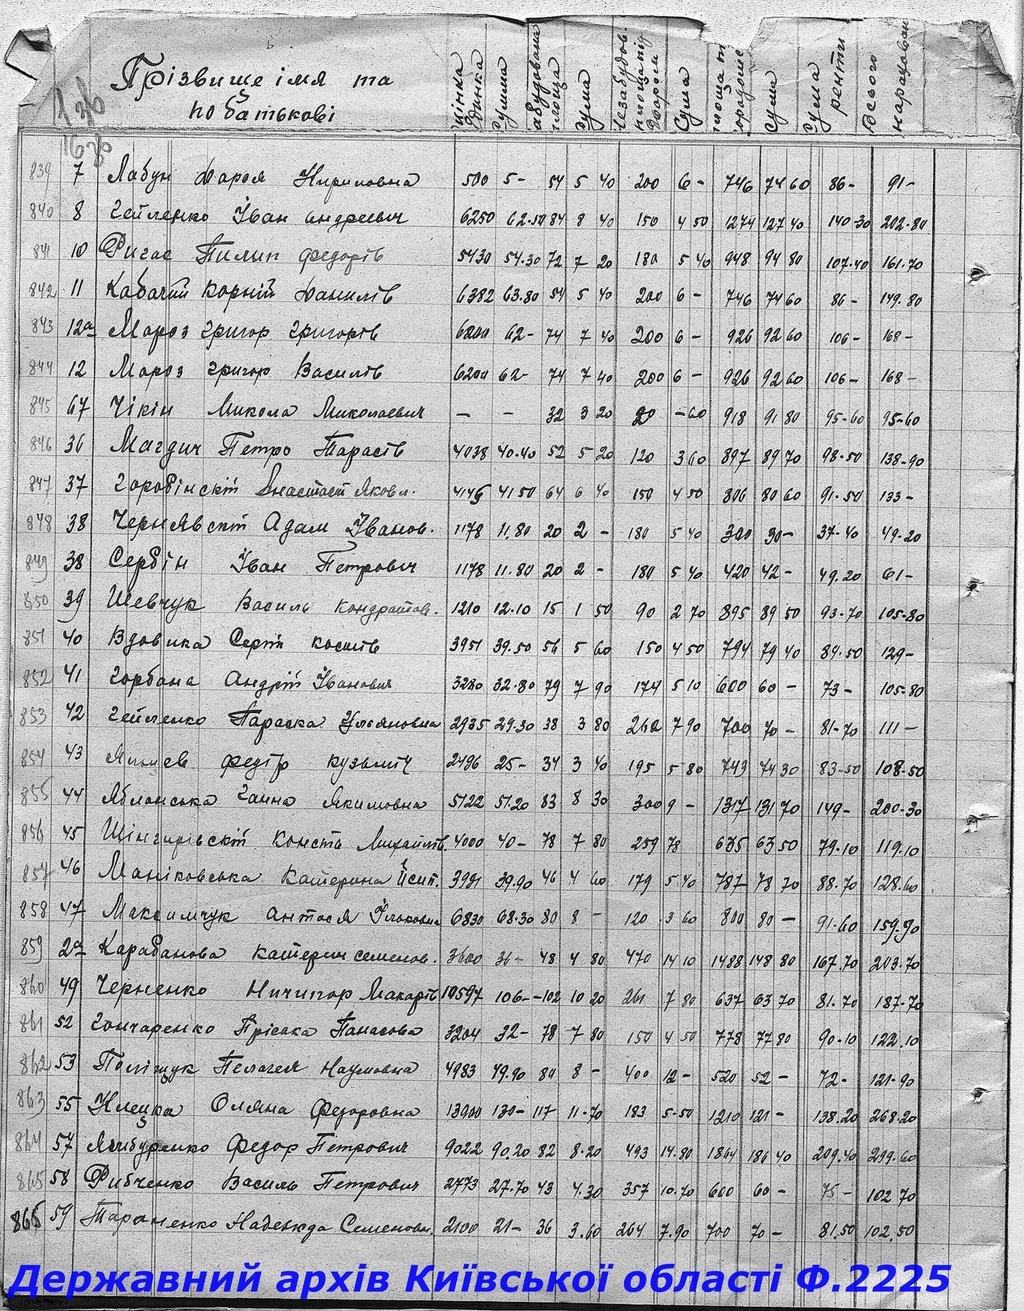 Прізвище імя та по батькові
839 7 Лабун Дария Кириловна 500 5- 54 5 40 200 6- 746 74 60 86- 91-
840 8 Гейленко Іван Андреевич 6250 62.50 84 8 40 150 4 50 1274 127 40 140-30 202-80
841 10 Пилип Федорів 5430 54.30 72 7 20 180 5 40 948 94 80 107-40 161.70
842 11 Кабачій Корній Данилів 6382 63.80 54 5 40 200 6- 746 74 60 86- 149.80
843 12а Мороз Григор Григорів 6200 62- 74 7 40 200 6- 926 92 60 106- 168-
844 12 Мороз Григор Василів 6200 62- 74 7 40 200 6- 926 92 60 106- 168-
845 67 Чікін Микола Миколаевич - - 32 3 20 20 -60 918 91 80 95-60 95-60
846 36 Магдич Петро Тарасів 4038 40.40 52 5 20 120 3 60 897 89 70 98-50 138-90
847 37 Горобінскій Яковл. 4145 41 50 64 6 40 150 4 50 806 80 60 91-50 133-
848 38 Чернявскій Адам Іванов. 1178 11.80 20 2- 180 5 40 300 30- 37-40 49-20
849 38 Сербін Іван Петрович 1178 11.80 20 2- 180 5 40 420 42- 49.20 61-
850 39 Шевчук Василь Кондратов. 1210 12.10 15 1 50 90 2 70 895 89 50 93-70 105-80
851 40 Вдовика Сергій 3951 39.50 56 5 60 150 4 50 794 79 40 89-50 129-
852 41 Горбана Андрій Іванович 3280 32.80 79 7 90 174 5 10 600 60- 73- 105-80
853 42 Гейленко Параска Ульяновна 2935 29.30 38 3 80 260 7 90 700 70- 81-70 111-
854 43 Федір Кузьмич 2496 25- 34 3 40 195 5 80 743 74 30 83-50 108-50
855 44 Яблонська Ганна Якимовна 5122 51.20 83 8 30 300 9- 1317 131 70 149- 200-30
856 45 Конств Михайлів. 4000 40- 78 7 80 259 78 635 63 50 79.10 119.10
857 46 Маніковська Катерина Йсип. 3991 39.90 46 4 60 179 5 40 787 78 70 88.70 128.60
858 47 Максимчук Антося 6830 68.30 80 8- 120 3 60 800 80- 91.60 159.90
859 2а Карабанова Катерин Семенов. 3600 36- 48 4 80 470 14 10 1488 148 80 167.70 203.70
860 49 Черненко Ничипор Макарів 10597 106- 102 10 20 261 7 80 637 63 70 81.70 187-70
861 52 Гончаренко Пріська Панасова 3204 32- 78 7 80 150 4 50 778 77 80 90-10 122.10
862 53 Поліщук Пелагея Наумовна 4983 49.90 80 8- 400 12- 520 52- 72- 121-90
863 55 Оляна Федоровна 13000 130- 117 11-70 183 5-50 1210 121- 138.20 268-20
864 57 Федор Петрович 9022 90.20 82 8-20 493 14.80 1864 186 40 209.40 299.60
865 58 Рибченко Василь Петрович 2773 27.70 43 4.30 357 10.70 600 60- 75- 102 70
866 59 Тараненко Надежда Семенови. 2100 21- 36 3.60 264 7.90 700 70- 81.50 102.50
Державний архів Київської області Ф.2225